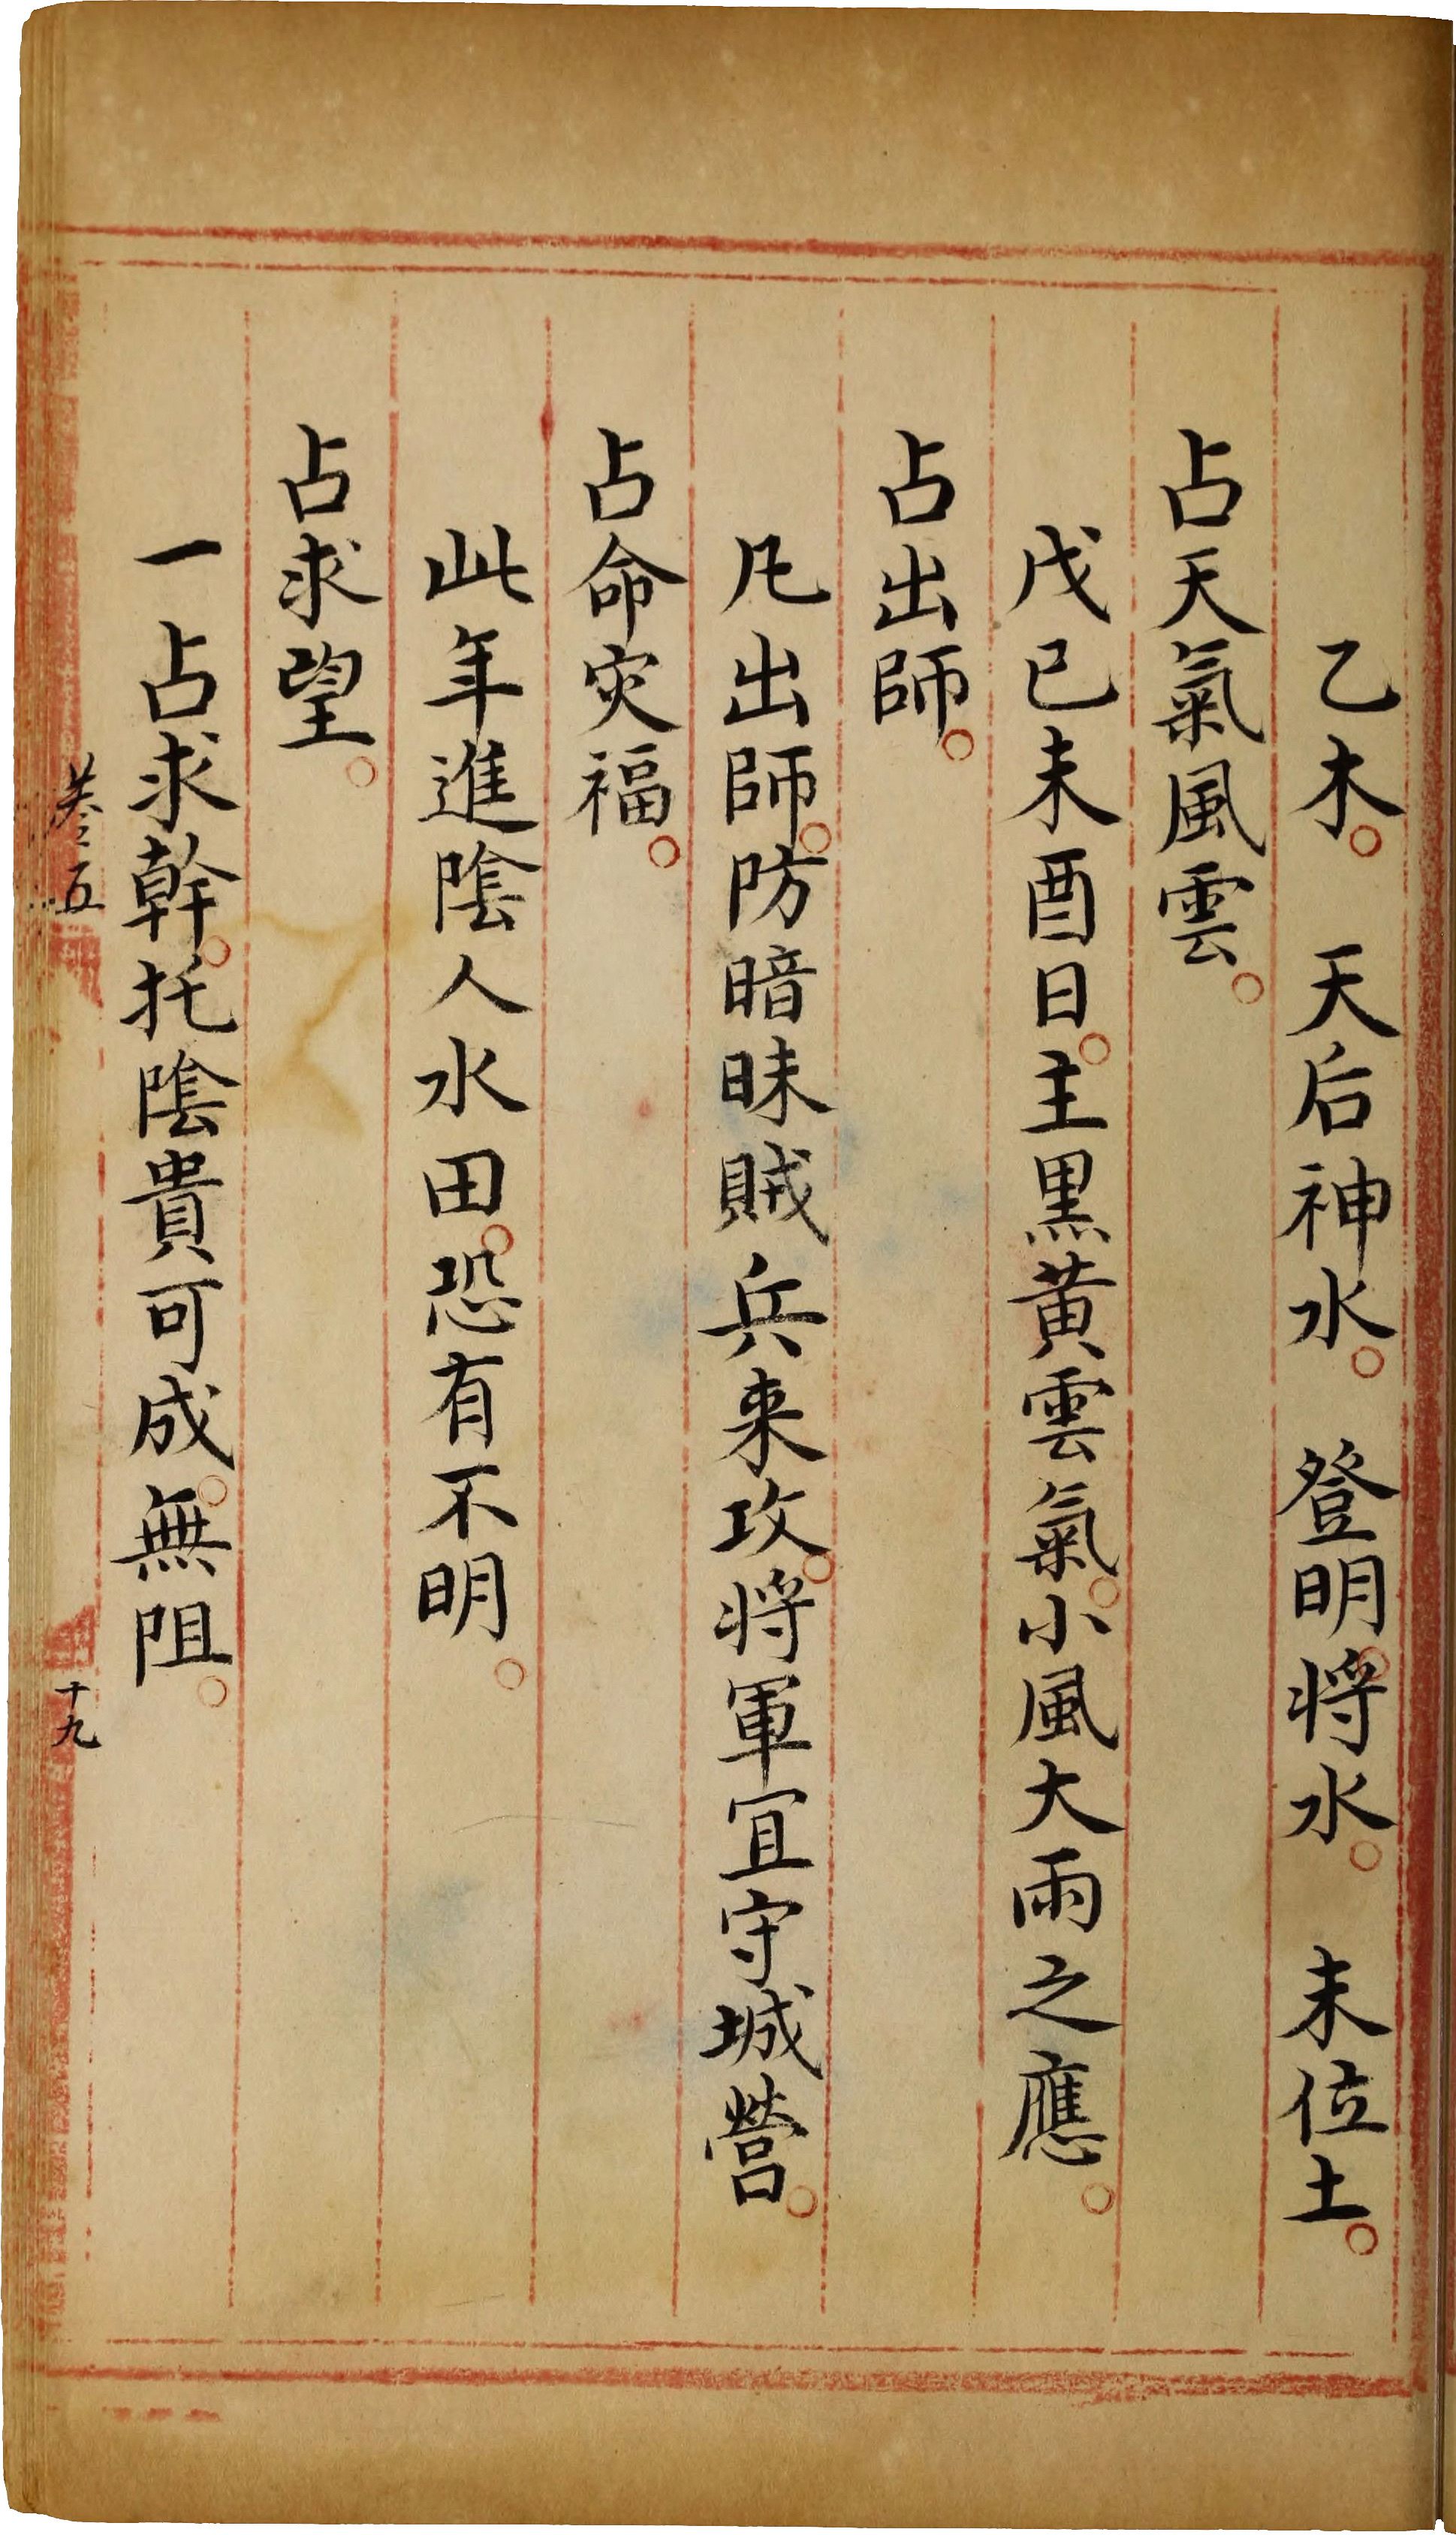 乙木。　天后神水。　登明。將水。　未位土。
占天氣風雲。
戊己未酉日。主黑黃雲氣。小風大雨之應。
占出師。
凡出師。防暗昧賊兵来攻。將軍宜守城營。
占命灾福。
此年進陰人水田。恐有不明。
占求望。
一占求幹。托陰貴可成。無阻。
卷五
十九